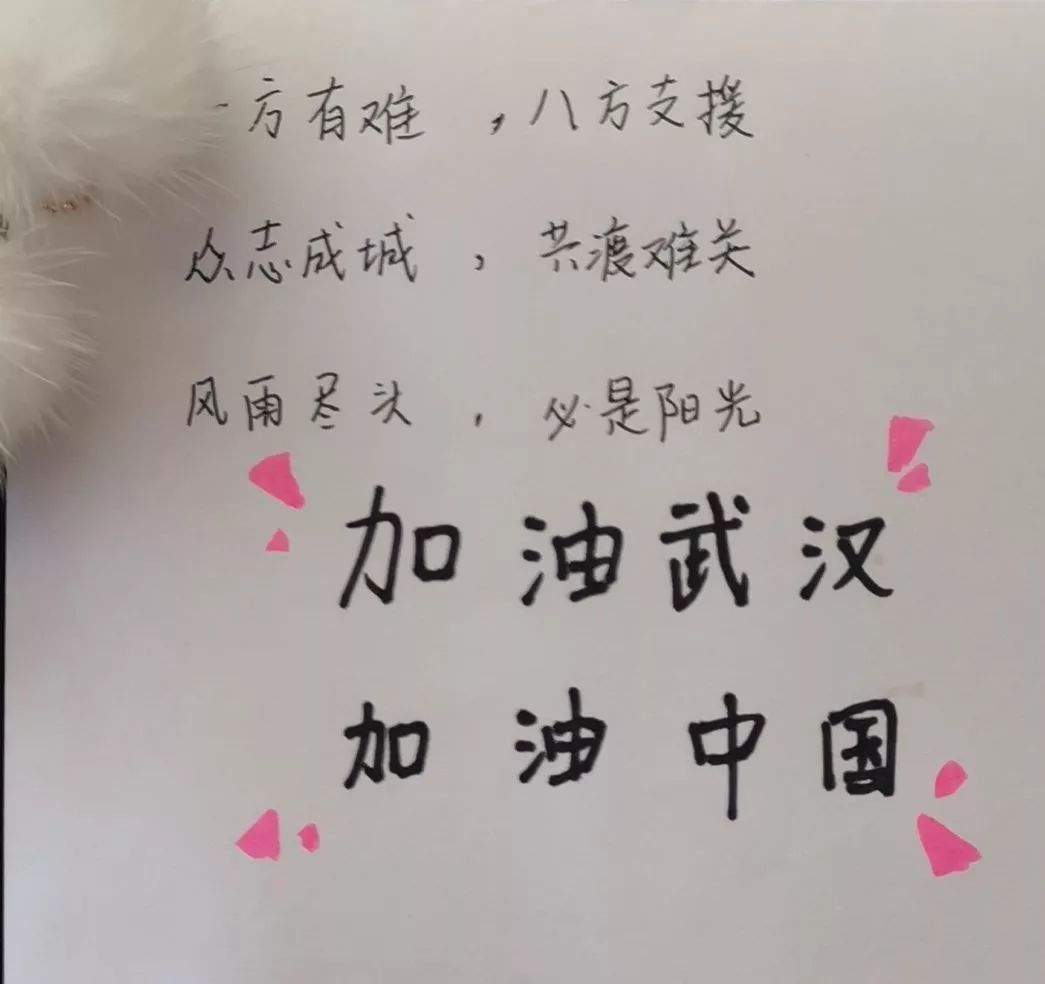 一方有难，八方支援
众志成城，共渡难关
风雨尽头，必是阳光
加油武汉
加油中国